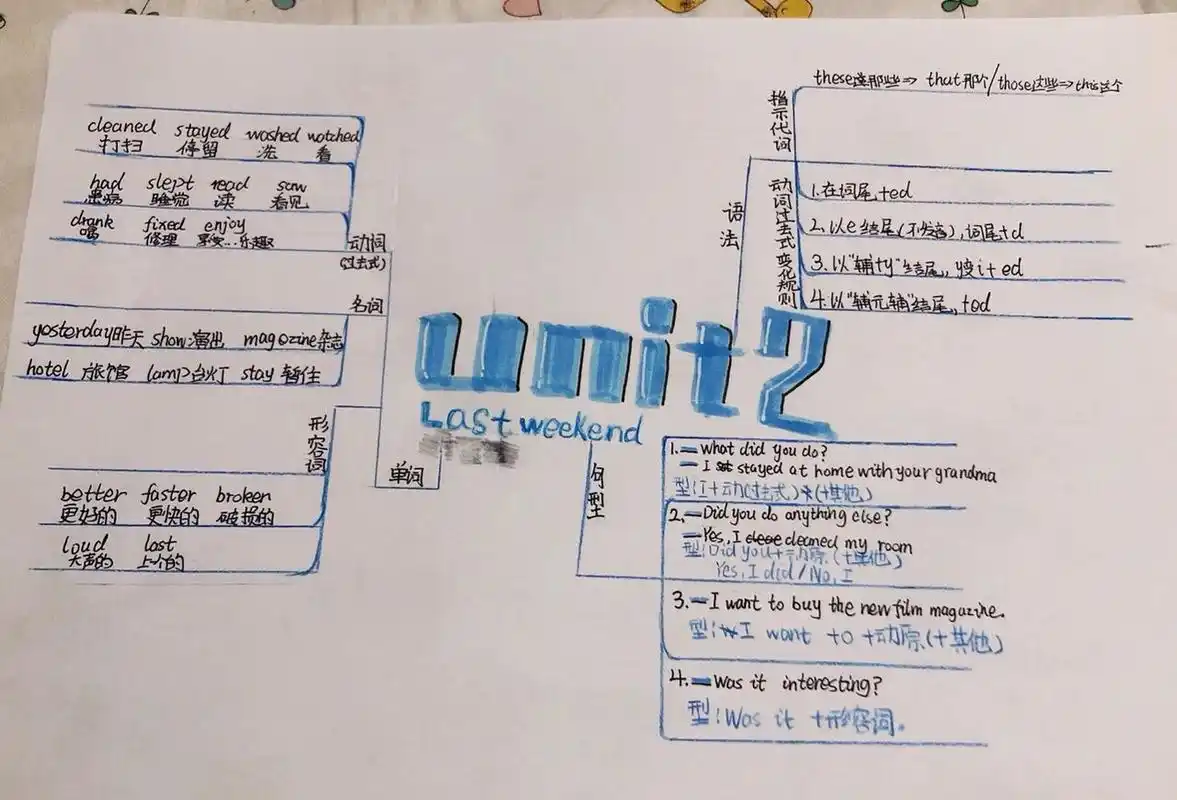 unit2
Last weekend
单词
动词
(过去式)
cleaned stayed washed watched
打扫 停留 洗 看
had slept read saw
患病 睡觉 读 看见
drank fixed enjoy
喝 修理 享受…乐趣
名词
yesterday昨天 show演出 magazine杂志
hotel 旅馆 lamp台灯 stay 暂住
形容词
better faster broken
更好的 更快的 破损的
loud last
大声的 上个的
语法
指示代词
these这那些⇒ that那个/those这些⇒this这个
动词过去式变化规则
1.在词尾+ed
2.以e结尾(不发音),词尾+d
3.以“辅+y”结尾,变i+ed
4.以“辅元辅”结尾,+ed
句型
1.—What did you do?
—I stayed at home with your grandma
型:I+动(过去式)+(+其他)
2.—Did you do anything else?
—Yes, I cleaned my room
型:Did you+动原(+其他)
Yes, I did/No, I
3.—I want to buy the new film magazine.
型:I want to +动原(+其他)
4.—Was it interesting?
型:Was it +形容词.